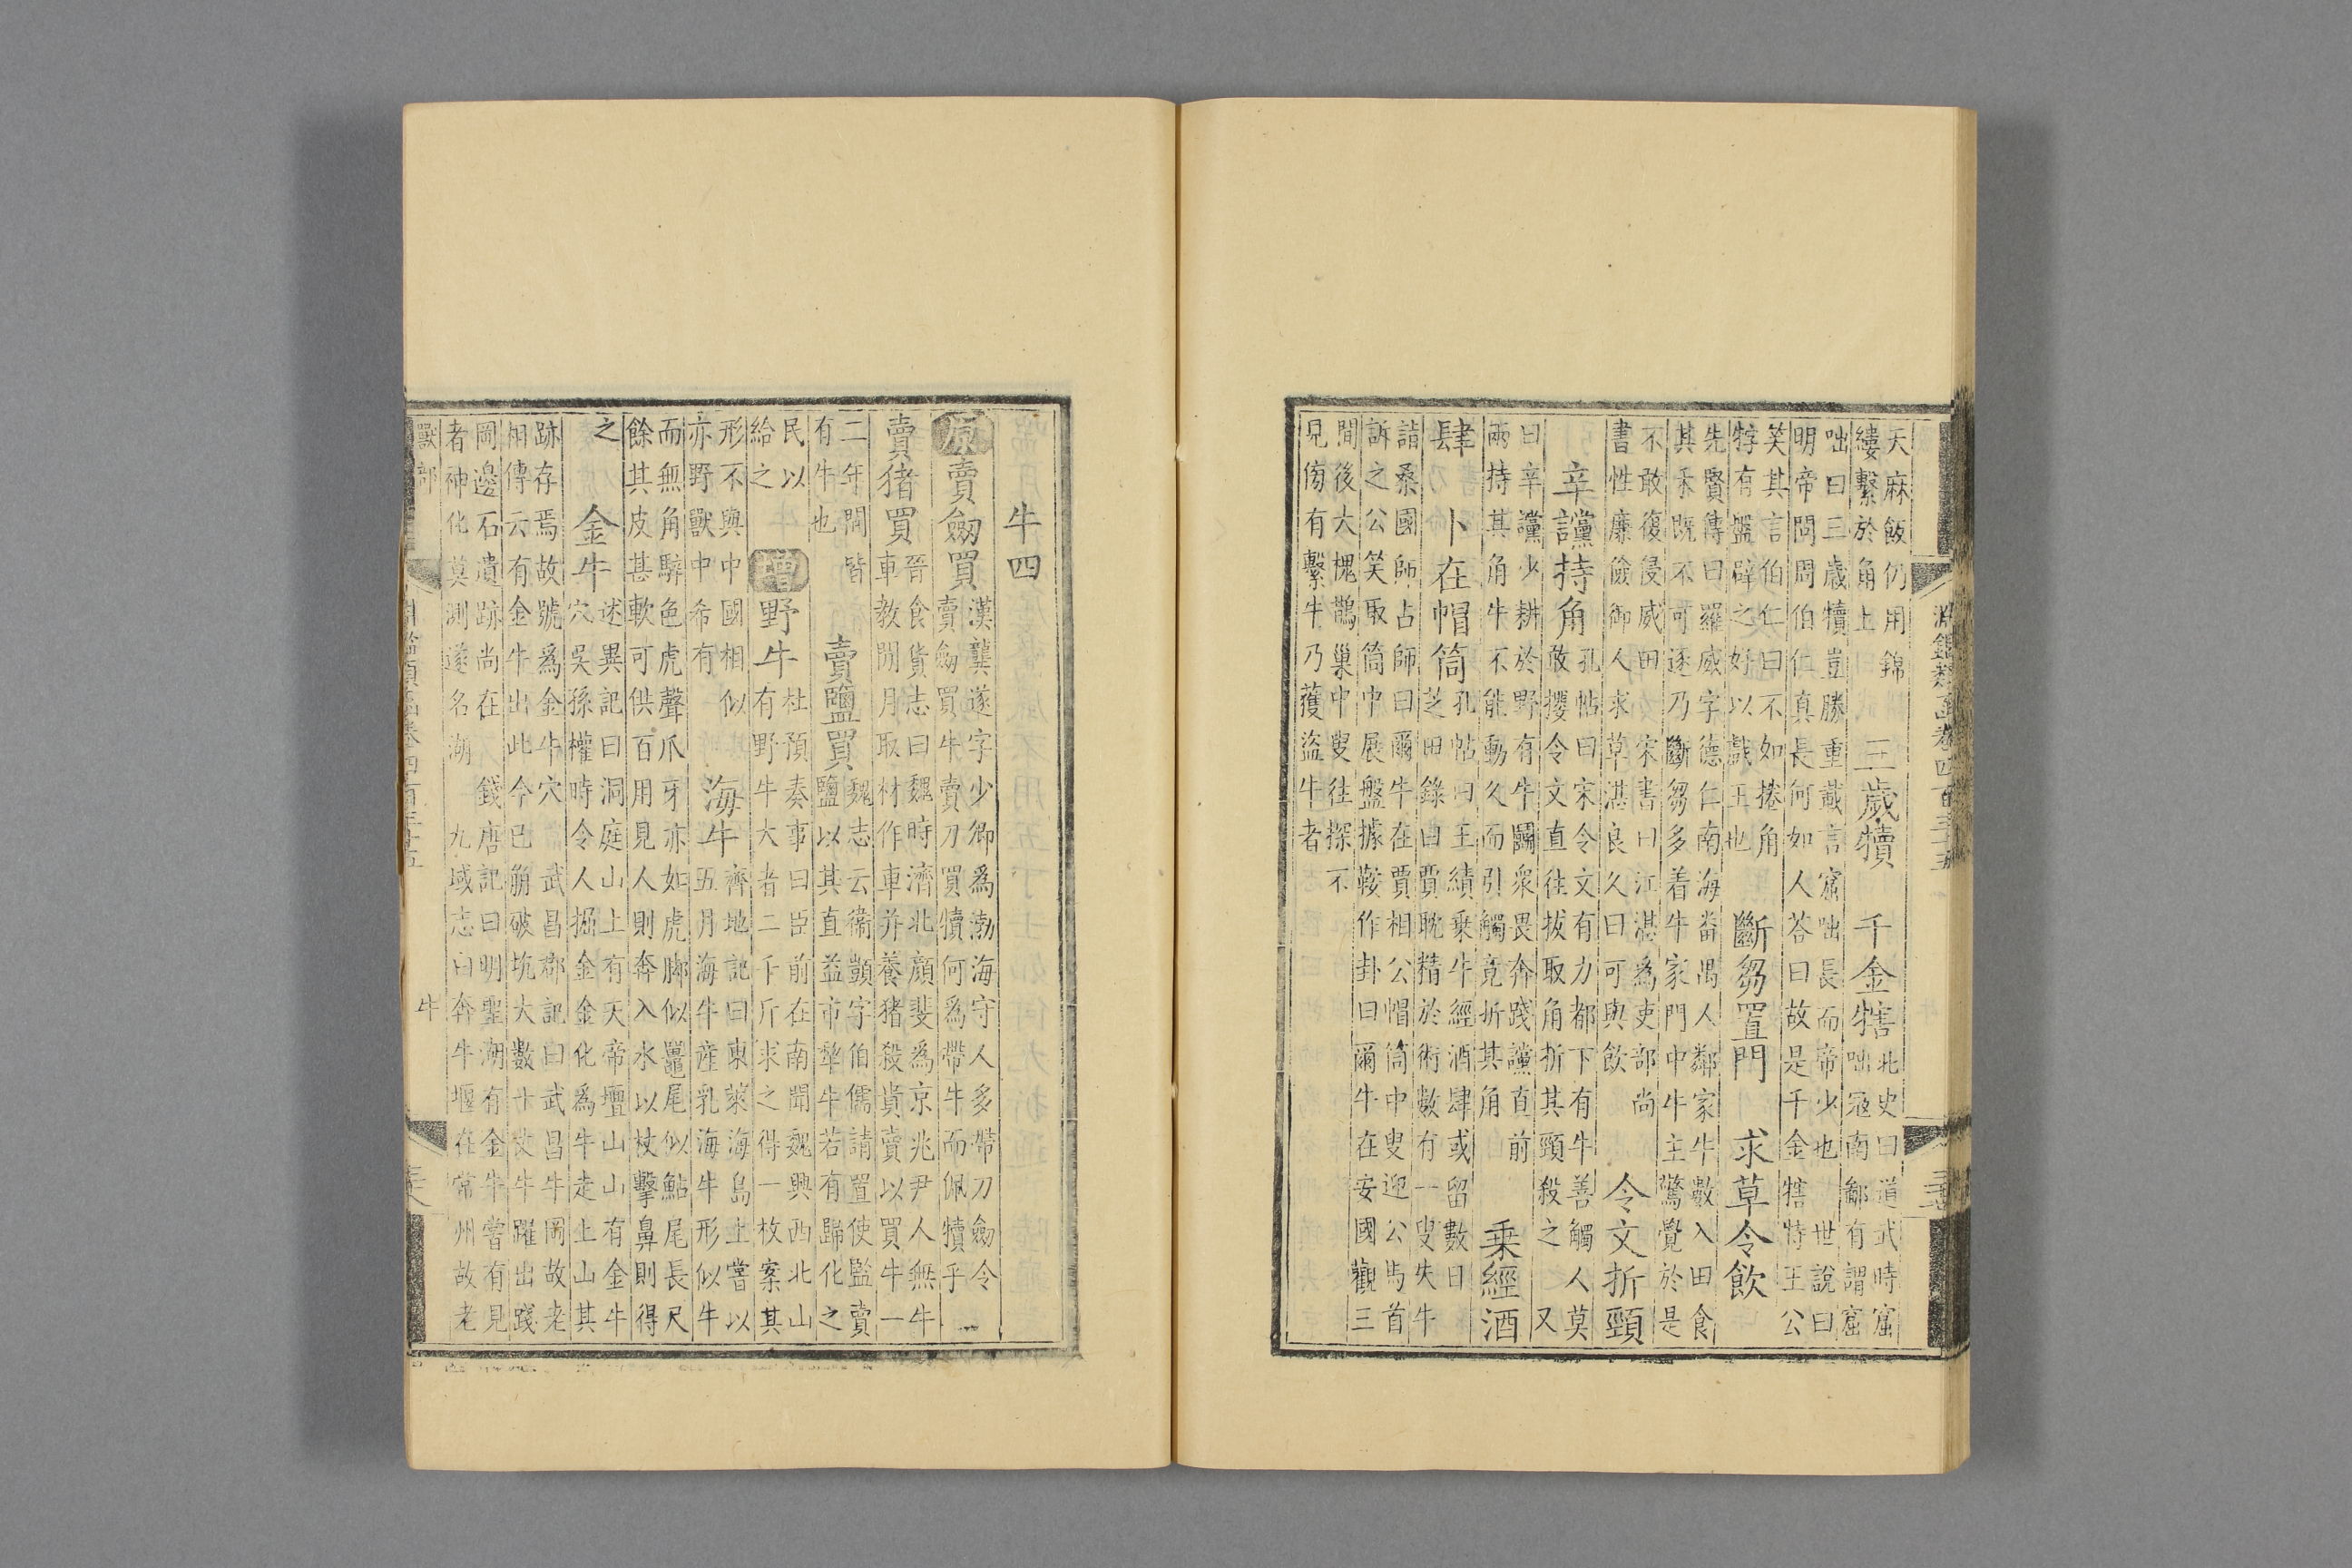 淵鑑類函卷四百三十五
天麻飯仍用錦
縷繫於角上
三歲犢　千金犗
北史曰道武時窟
咄寇南鄙有謂窟
咄曰三歲犢豈勝重載言窟咄長而帝少也　世說曰
明帝問周伯仁真長何如人荅曰故是千金犗特王公
笑其言伯仁曰不如捲角
牸有盤辟之好以戲王也
斷芻置門　求草令飲
先賢傳曰羅威字德仁南海番禺人鄰家牛數入田食
其禾既不可逐乃斷芻多着牛家門中牛主驚覺於是
不敢復侵威田　宋書曰江湛爲吏部尚
書性廉儉御人求草湛良久曰可與飲
令文折頸
辛讜持角
孔帖曰宋令文有力都下有牛善觸人莫
敢攖令文直往拔取角折其頸殺之　又
曰辛讜少耕於野有牛鬭衆畏奔踐讜直前
兩持其角牛不能動久而引觸竟折其角
乗經酒
肆　卜在帽筒
孔帖曰王績乗牛經酒肆或留數日
芝田錄曰賈耽精於術數有一叟失牛
詣桑國師占師曰爾牛在賈相公帽筒中叟迎公馬首
訴之公笑取筒中展盤據鞍作卦曰爾牛在安國觀三
間後大槐鵲巢中叟往探不
見傍有繫牛乃獲盜牛者
牛四
原　賣劒買
漢龔遂字少卿爲渤海守人多帶刀劒令
賣劒買牛賣刀買犢何爲帶牛而佩犢乎
賣猪買
晉食貨志曰魏時濟北顏斐爲京兆尹人無牛
車教閒月取材作車并養猪殺貴賣以買牛一
二年閒皆
有牛也
賣鹽買
魏志云衛顗字伯儒請置使監賣
鹽以其直益市犂牛若有歸化之
民以
給之
增　野牛
杜預奏事曰臣前在南聞魏興西北山
有野牛牛大者二千斤求之得一枚案其
形不與中國相似
亦野獸中希有
海牛
齊地記曰東萊海島上嘗以
五月海牛產乳海牛形似牛
而無角騂色虎聲爪牙亦如虎脚似鼉尾似鮎尾長尺
餘其皮甚軟可供百用見人則奔入水以杖擊鼻則得
之
金牛
述異記曰洞庭山上有天帝壇山山有金牛
穴吳孫權時令人掘金金化爲牛走上山其
跡存焉故號爲金牛穴　武昌郡記曰武昌牛岡故老
相傳云有金牛出此今已崩破坑大數十丈牛躍出踐
岡邊石遺跡尚在　錢唐記曰明聖湖有金牛嘗有見
者神化莫測遂名湖　九域志曰奔牛堰在常州故老
獸部
牛